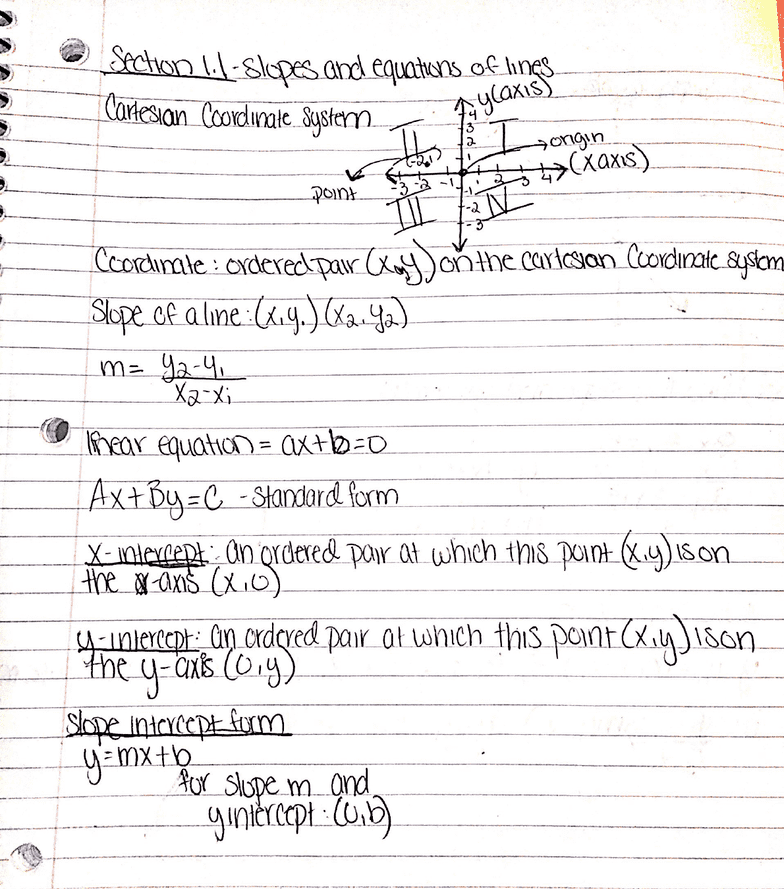 Section 1.1 - slopes and equations of lines
Cartesian Coordinate System
y(axis)
4
3
2
1
II
I
origin
(-2,1)
(x axis)
point
-3 -2 -1 1 2 3 4
-1
-2
-3
III
IV
Coordinate : ordered pair (x,y) on the cartesian Coordinate system
Slope of a line : (x₁y₁) (x₂, y₂)
m = y₂-y₁
x₂-x₁
linear equation = ax+b=0
Ax+By=C - standard form
x-intercept: an ordered pair at which this point (x,y) is on
the x-axis (x,0)
y-intercept: an ordered pair at which this point (x,y) is on
the y-axis (0,y)
Slope intercept form
y=mx+b
for slope m and
y intercept : (0,b)